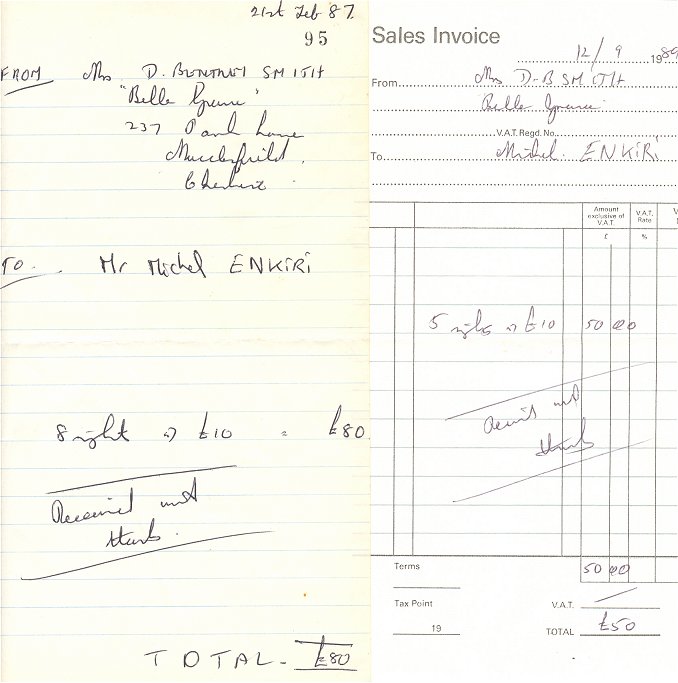 21st Feb 87.
95
FROM Mrs D. SMITH
"Belle
237 Park Lane
Macclesfield.
Cheshire.
TO. Mr Michel ENKIRI
8 night @ £10 = £80
Received with
thanks.
TOTAL - £80
Sales Invoice
12/9 1989
From Mrs D-B SMITH
Belle
V.A.T. Regd. No.
To Michel. ENKIRI
Amount exclusive of V.A.T.
V.A.T. Rate
V
£
%
5 nights @ £10 50 00
Received with
thanks
Terms 50 00
Tax Point
V.A.T.
19
TOTAL £50